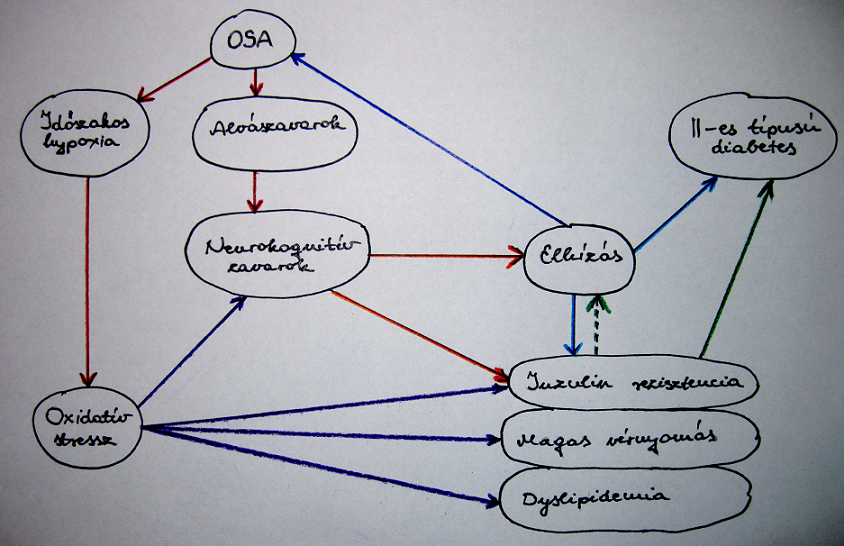 OSA
Időszakos
hypoxia
Alvászavarok
II-es típusú
diabetes
Neurokognitív
zavarok
Elhízás
Oxidatív
stressz
Inzulin rezisztencia
Magas vérnyomás
Dyslipidemia